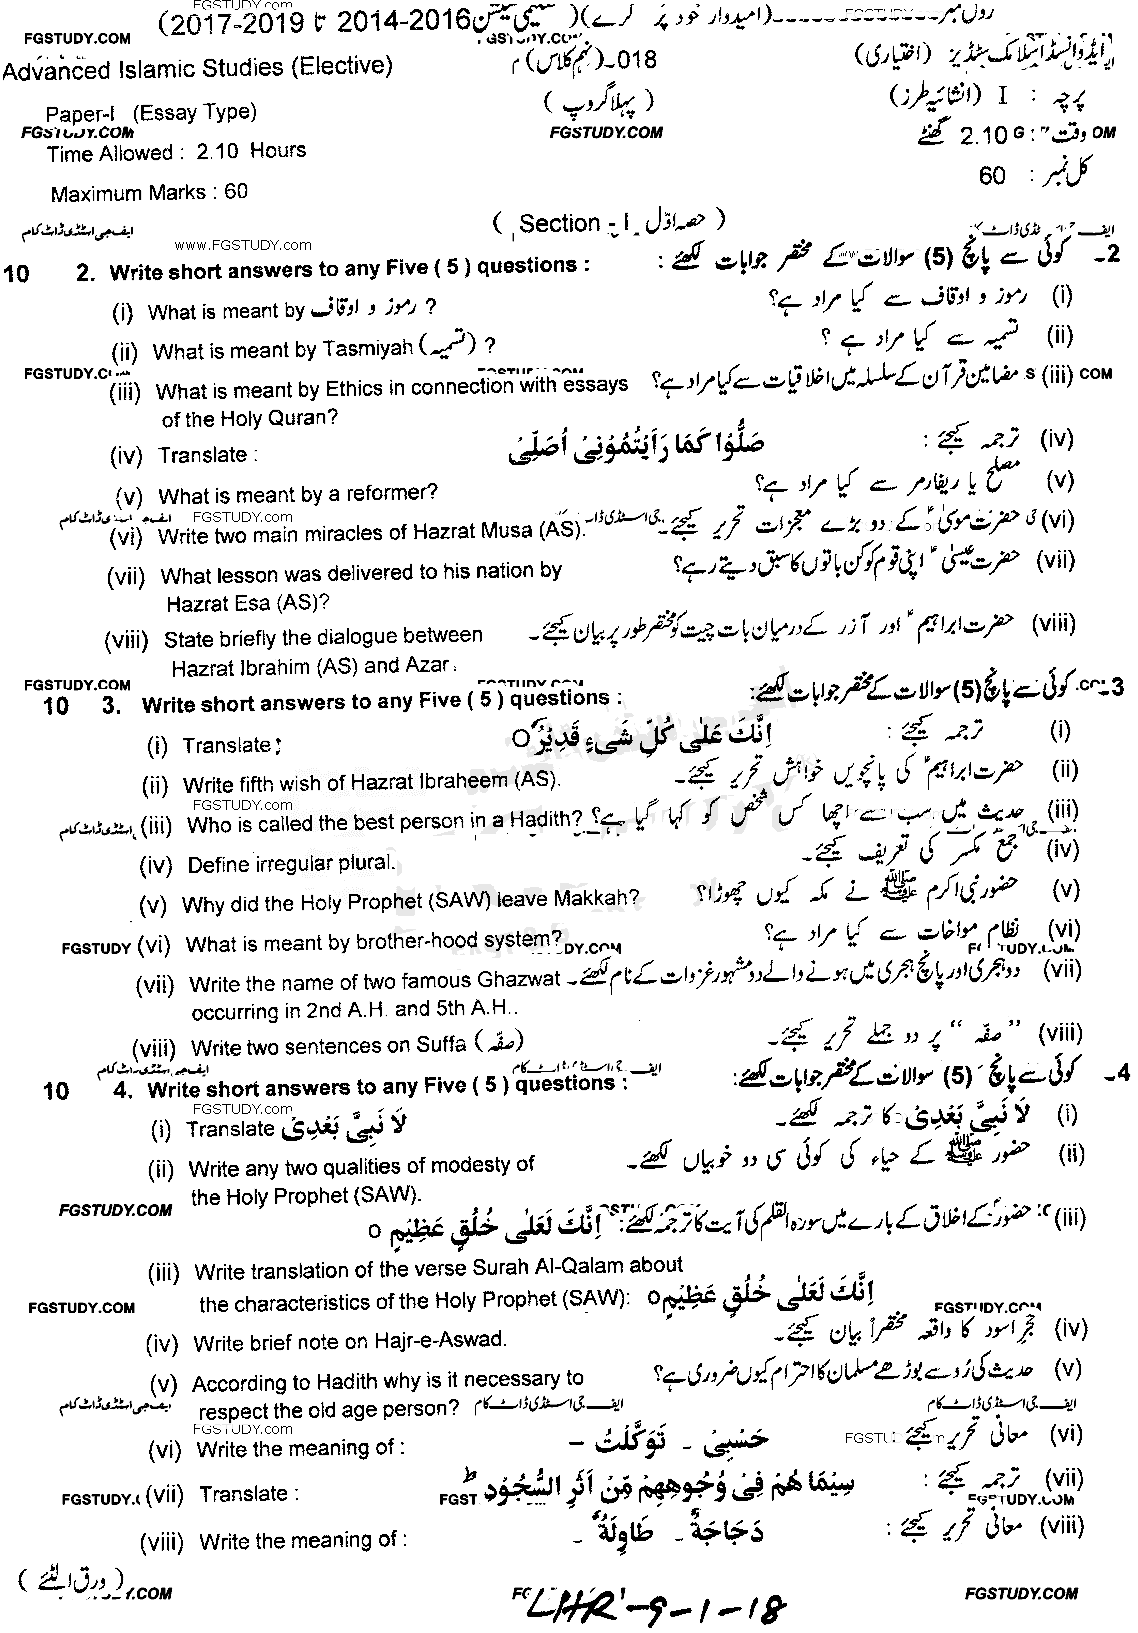 FGSTUDY.COM
رول نمبر (امیدوار خود پُر کرے) (تعلیمی سیشن 2014-2016 تا 2017-2019)
FGSTUDY.COM
Advanced Islamic Studies (Elective) 018-(نہم کلاس) م ایڈوانسڈ اسلامک سٹڈیز (اختیاری)
Paper-I (Essay Type) (پہلا گروپ) پرچہ : I (انشائیہ طرز)
FGSTUDY.COM FGSTUDY.COM
Time Allowed : 2.10 Hours وقت : 2.10 گھنٹے
Maximum Marks : 60 کل نمبر : 60
(Section - I حصہ اوّل)
ایف جی اسٹڈی ڈاٹ کام
www.FGSTUDY.com
10 2. Write short answers to any Five ( 5 ) questions : 2- کوئی سے پانچ (5) سوالات کے مختصر جوابات لکھئے :
(i) What is meant by رموز و اوقاف ? (i) رموز و اوقاف سے کیا مراد ہے؟
(ii) What is meant by Tasmiyah (تسمیہ) ? (ii) تسمیہ سے کیا مراد ہے ؟
(iii) What is meant by Ethics in connection with essays (iii) مضامین قرآن کے سلسلہ میں اخلاقیات سے کیا مراد ہے؟
of the Holy Quran?
(iv) Translate : صَلُّوْا كَمَا رَاَيْتُمُوْنِيْ اُصَلِّيْ (iv) ترجمہ کیجئے :
(v) What is meant by a reformer? (v) مصلح یا ریفارمر سے کیا مراد ہے؟
FGSTUDY.com
(vi) Write two main miracles of Hazrat Musa (AS). (vi) حضرت موسیٰؑ کے دو بڑے معجزات تحریر کیجئے۔
(vii) What lesson was delivered to his nation by (vii) حضرت عیسیٰؑ اپنی قوم کو کن باتوں کا سبق دیتے رہے؟
Hazrat Esa (AS)?
(viii) State briefly the dialogue between (viii) حضرت ابراہیمؑ اور آزر کے درمیان بات چیت کو مختصر طور پر بیان کیجئے۔
Hazrat Ibrahim (AS) and Azar.
FGSTUDY.COM
10 3. Write short answers to any Five ( 5 ) questions : 3- کوئی سے پانچ (5) سوالات کے مختصر جوابات لکھئے:
(i) Translate : اِنَّكَ عَلٰى كُلِّ شَيْءٍ قَدِيْرٌ o (i) ترجمہ کیجئے :
(ii) Write fifth wish of Hazrat Ibraheem (AS). (ii) حضرت ابراہیمؑ کی پانچویں خواہش تحریر کیجئے۔
FGSTUDY.com
(iii) Who is called the best person in a Hadith? (iii) حدیث میں سب سے اچھا کس شخص کو کہا گیا ہے؟
(iv) Define irregular plural. (iv) جمع مکسر کی تعریف کیجئے۔
(v) Why did the Holy Prophet (SAW) leave Makkah? (v) حضور نبی اکرم ﷺ نے مکہ کیوں چھوڑا؟
(vi) What is meant by brother-hood system? (vi) نظام مواخات سے کیا مراد ہے؟
(vii) Write the name of two famous Ghazwat (vii) دو ہجری اور پانچ ہجری میں ہونے والے دو مشہور غزوات کے نام لکھئے۔
occurring in 2nd A.H. and 5th A.H..
(viii) Write two sentences on Suffa (صفّہ) (viii) "صفّہ" پر دو جملے تحریر کیجئے۔
ایف جی اسٹڈی ڈاٹ کام
10 4. Write short answers to any Five ( 5 ) questions : 4- کوئی سے پانچ (5) سوالات کے مختصر جوابات لکھئے:
FGSTUDY.com
(i) Translate لَا نَبِيَّ بَعْدِيْ (i) لَا نَبِيَّ بَعْدِيْ کا ترجمہ لکھئے۔
(ii) Write any two qualities of modesty of (ii) حضور ﷺ کے حیاء کی کوئی سی دو خوبیاں لکھئے۔
the Holy Prophet (SAW).
FGSTUDY.COM (iii) حضورؐ کے اخلاق کے بارے میں سورہ القلم کی آیت کا ترجمہ لکھئے: اِنَّكَ لَعَلٰى خُلُقٍ عَظِيْمٍ o
(iii) Write translation of the verse Surah Al-Qalam about
the characteristics of the Holy Prophet (SAW): اِنَّكَ لَعَلٰى خُلُقٍ عَظِيْمٍ o
FGSTUDY.COM FGSTUDY.COM
(iv) Write brief note on Hajr-e-Aswad. (iv) حجرِ اسود کا واقعہ مختصراً بیان کیجئے۔
(v) According to Hadith why is it necessary to (v) حدیث کی رُو سے بوڑھے مسلمان کا احترام کیوں ضروری ہے؟
respect the old age person? ایف جی اسٹڈی ڈاٹ کام
FGSTUDY.com
(vi) Write the meaning of : حَسْبِيْ ۔ تَوَكَّلْتُ - (vi) معانی تحریر کیجئے :
(vii) Translate : سِيْمَا هُمْ فِيْ وُجُوْهِهِمْ مِّنْ اَثَرِ السُّجُوْدِ ط (vii) ترجمہ کیجئے :
FGSTUDY.COM
(viii) Write the meaning of : دَجَاجَةٌ ۔ طَاوِلَةٌ ۔ (viii) معانی تحریر کیجئے :
(ورق الٹئے)
FGSTUDY.COM
LHR-9-1-18